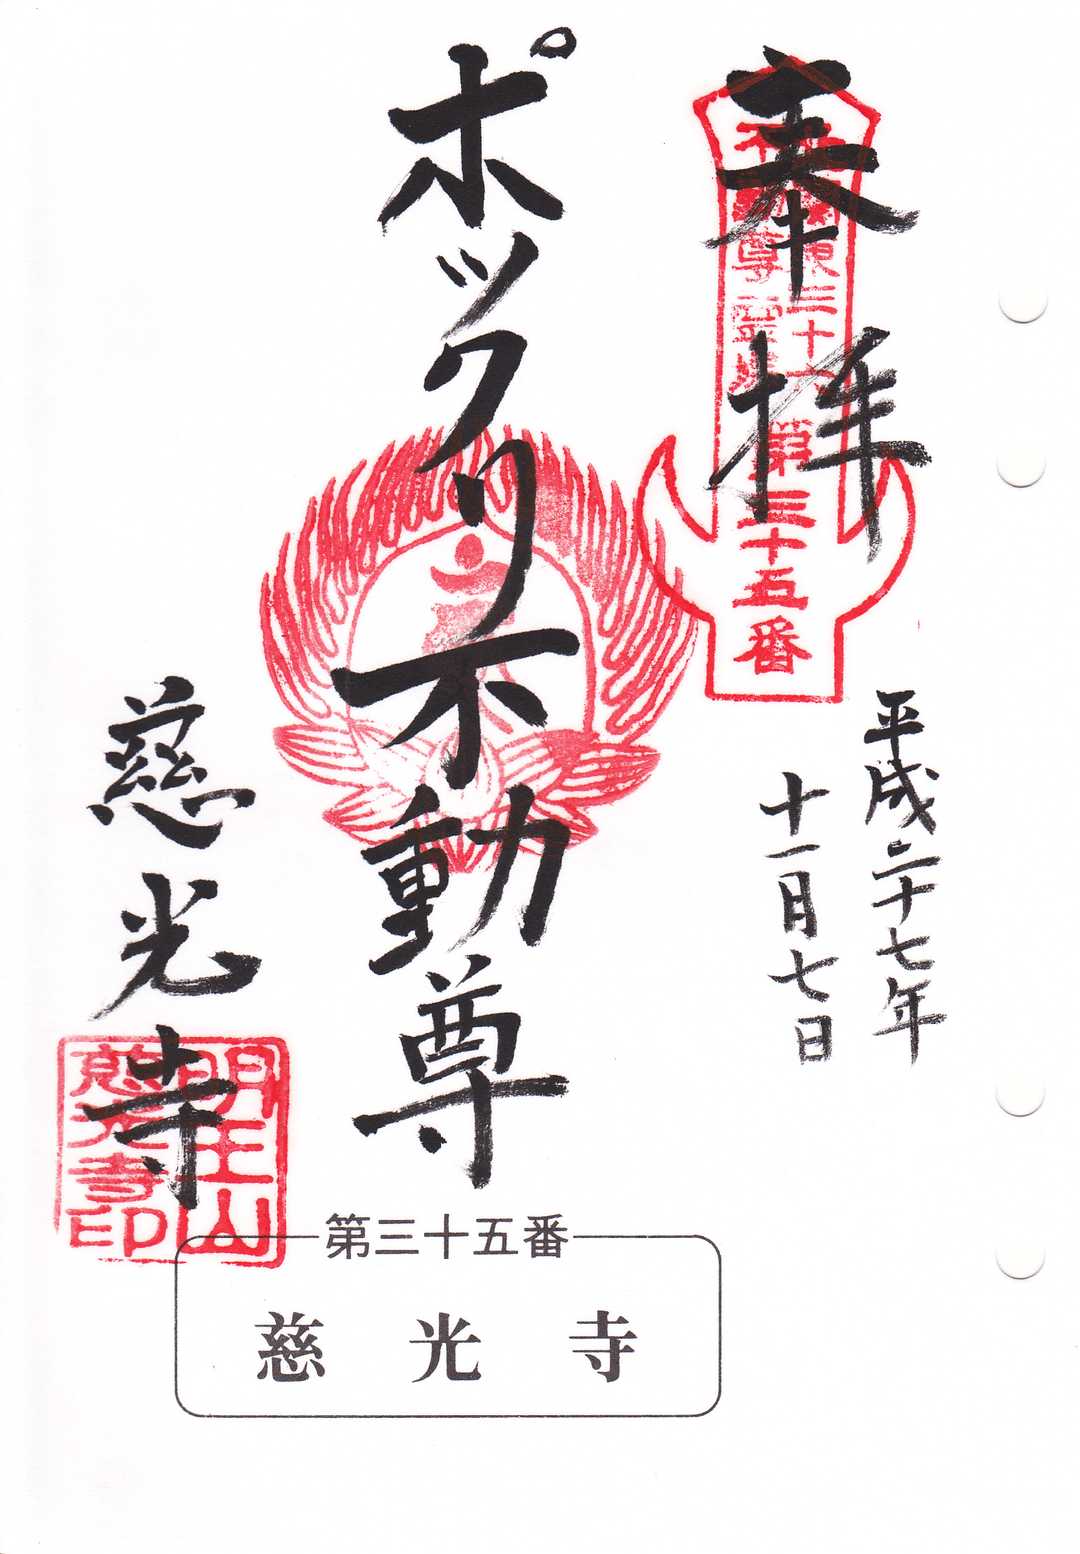 奉拝
第三十五番
平成二十七年
十一月七日
ポックリ不動尊
慈光寺
明王山
慈光寺印
第三十五番
慈光寺